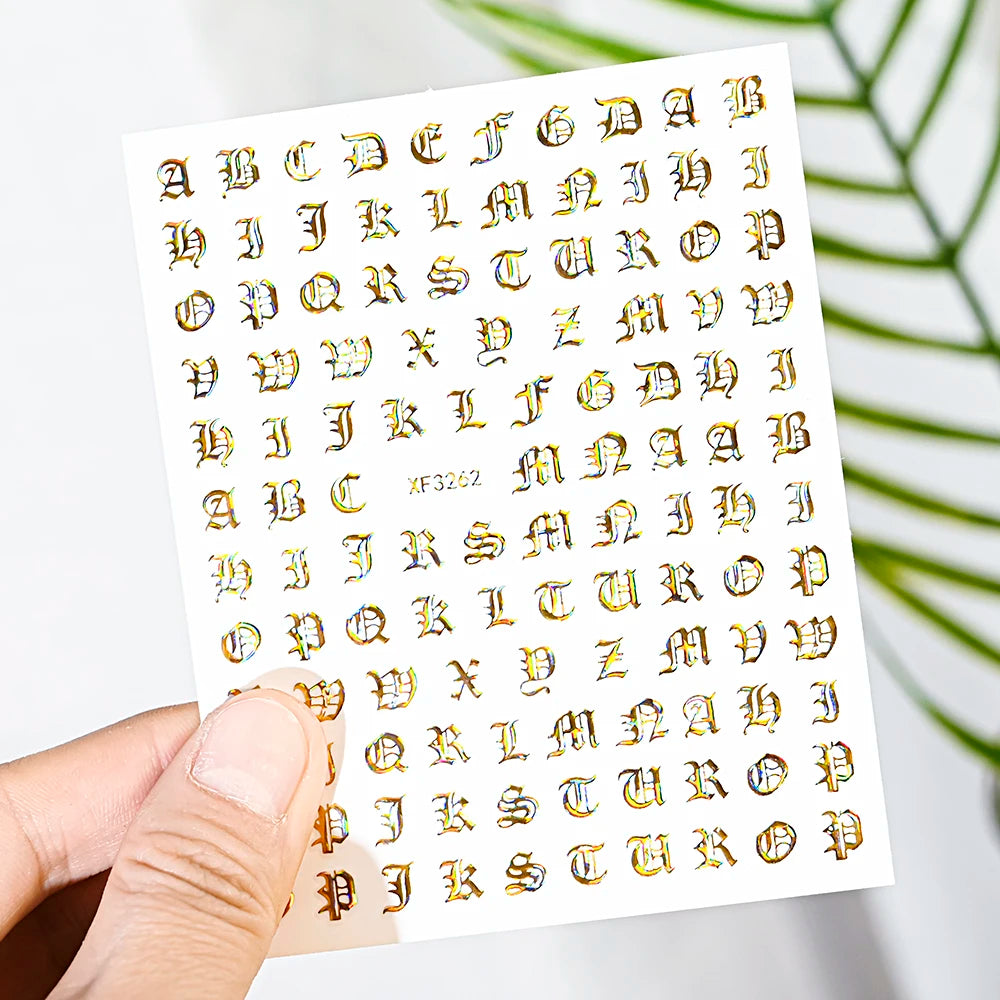 A B C D E F G D A B
H I J K L M N I H I
O P Q R S T U R O P
V W W X Y Z M V W
H I J K L F G D H I
A B C XF3262 M N A A B
H I J R S M N I H I
O P Q K L T U R O P
W W X Y Z M V W
Q R L M N A H I
P J K S T U R O P
P J K S T U R O P